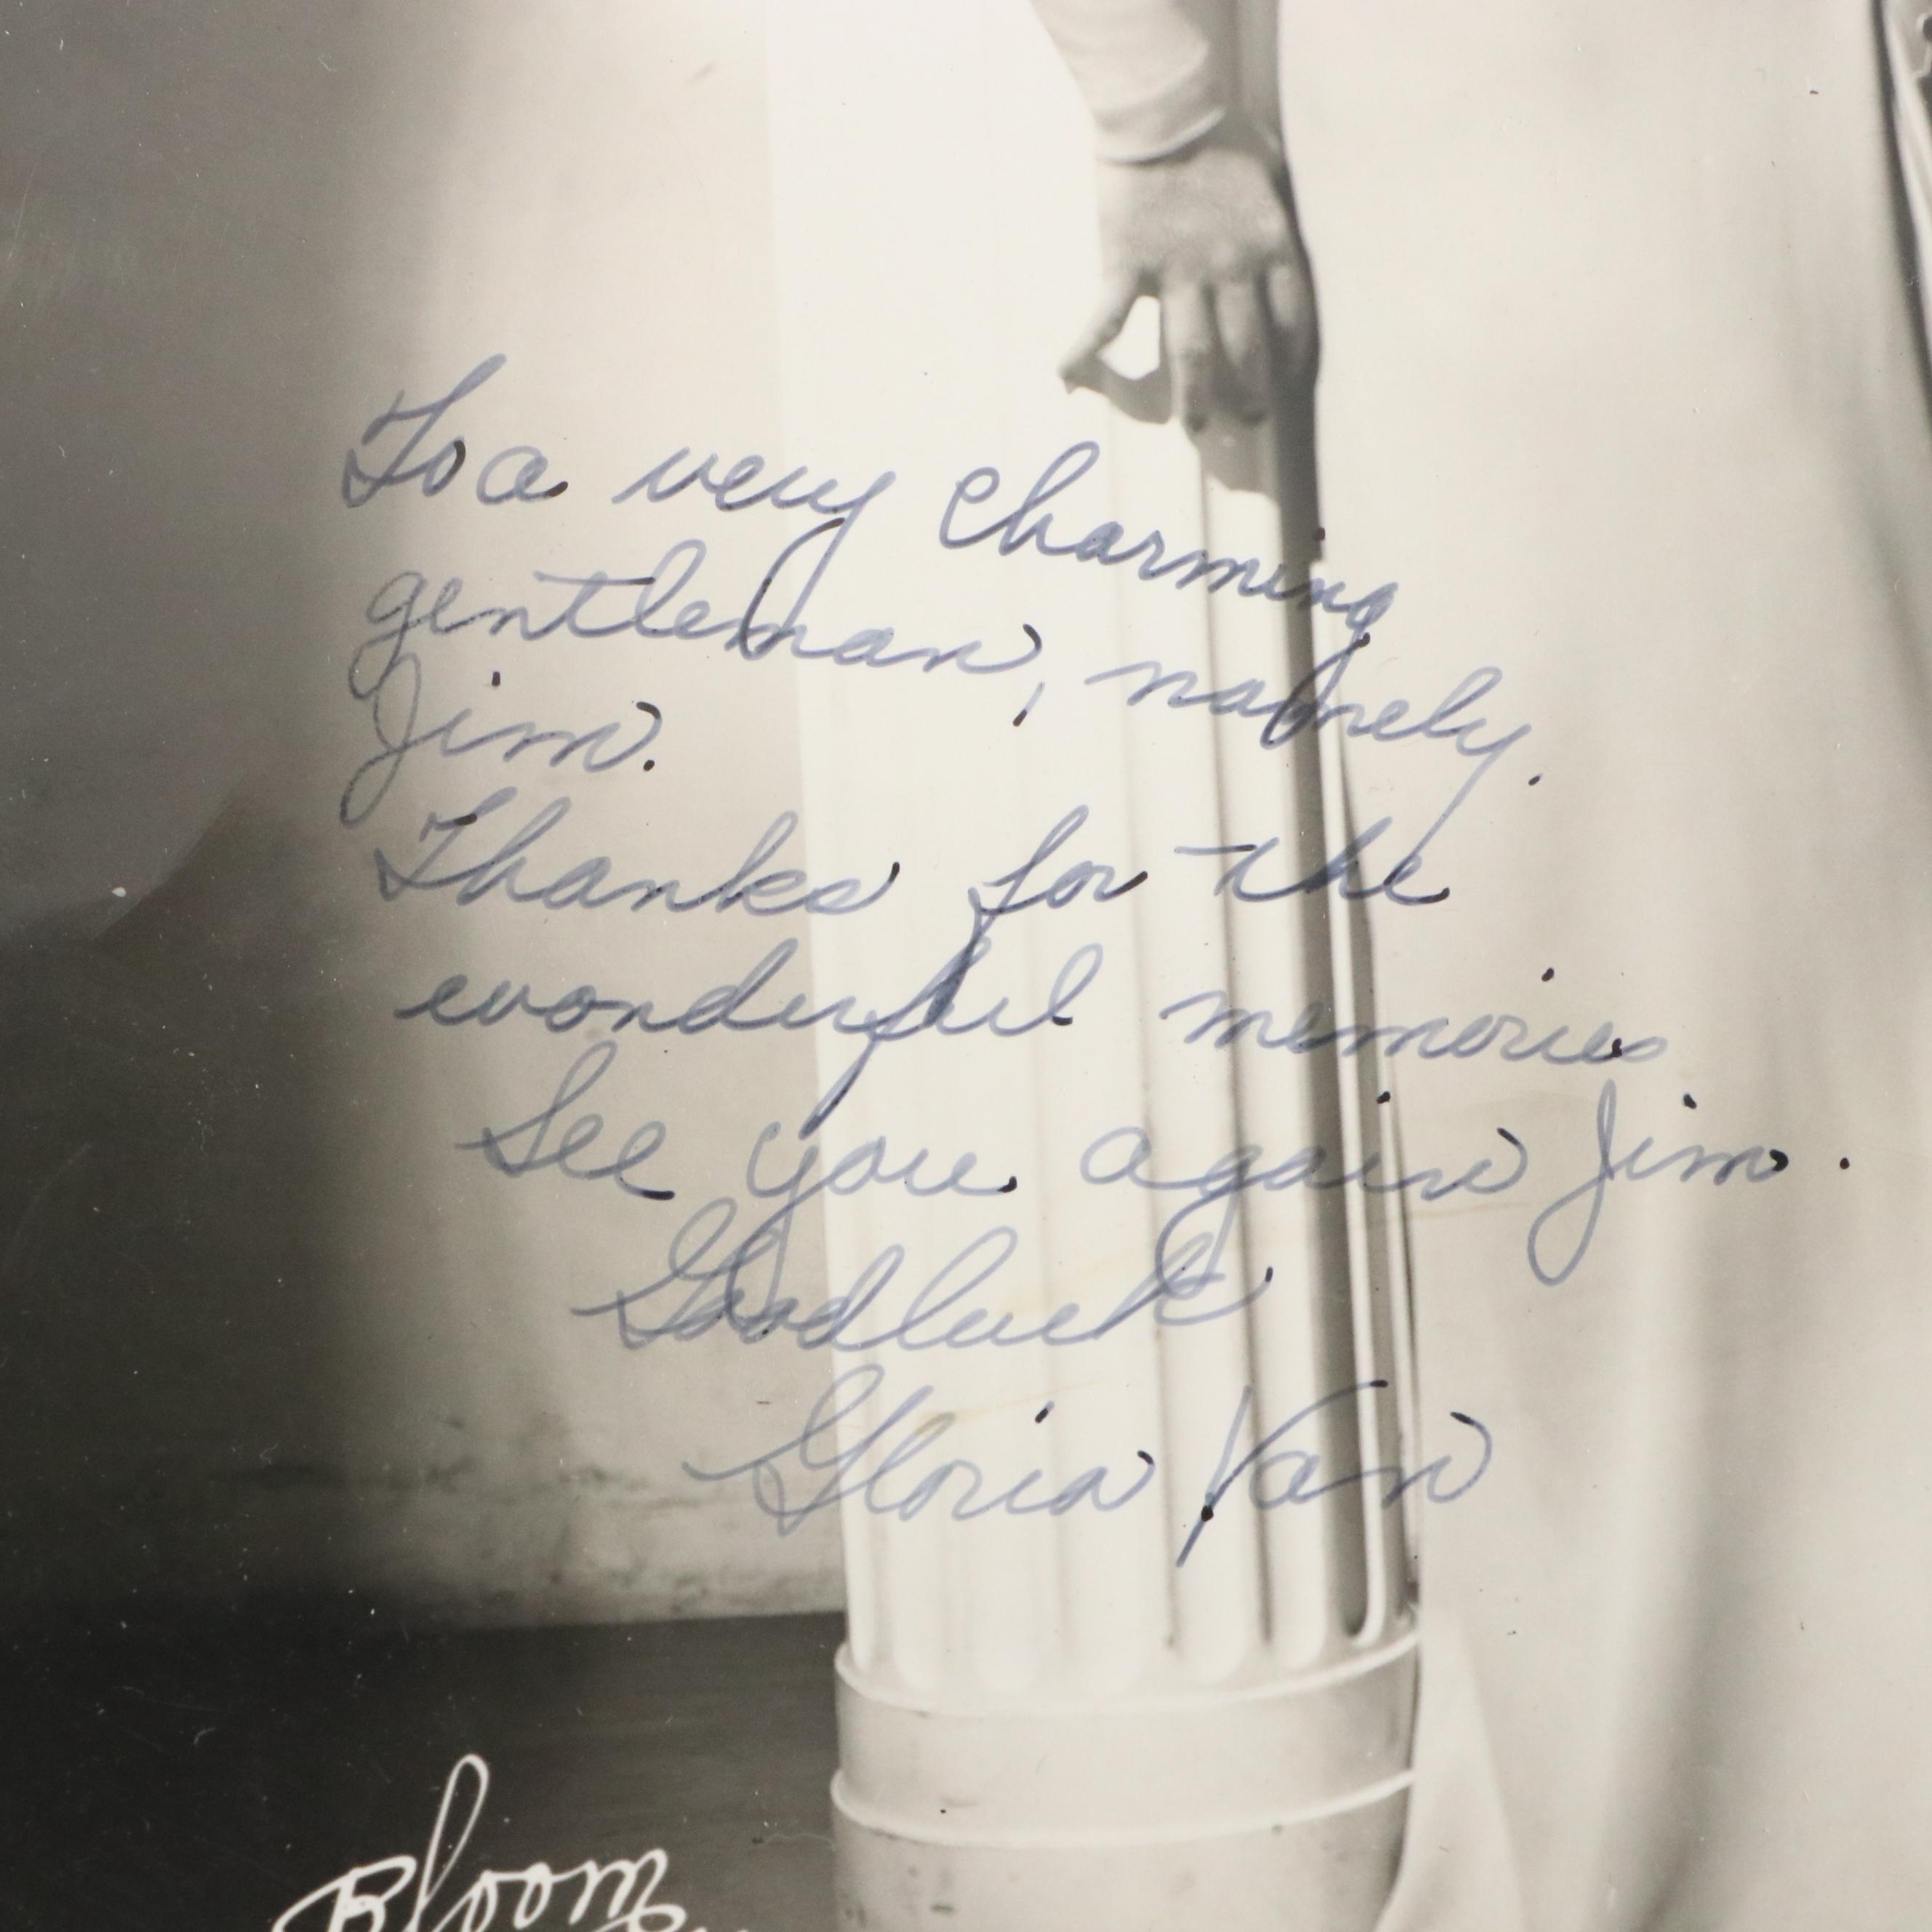 To a very charming
gentleman, namely
Jim.
Thanks for the
wonderful memories
See you again Jim.
Goodluck
Gloria Van
Bloom